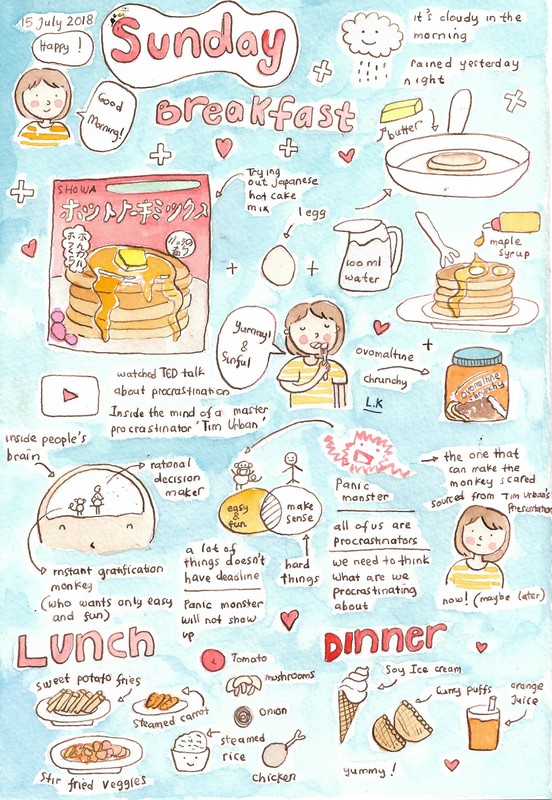 15 July 2018
Sunday
Happy !
Good
Morning!
it's cloudy in the
morning
rained yesterday
night
Breakfast
butter
SHOWA
ホットケーキミックス
Trying
out Japanese
hot cake
mix
1 egg
100 ml
water
maple
syrup
Yummy!
&
Sinful
ovomaltine
chrunchy
ovomaltine
crunchy
L.K
watched TED talk
about procrastination
Inside the mind of a master
procrastinator 'Tim Urban'
inside people's
brain
rational
decision
maker
instant gratification
monkey
(who wants only easy
and fun)
easy
&
fun
make
sense
a lot of
things doesn't
have deadline
hard
things
Panic monster
will not show
up
Panic
monster
the one that
can make the
monkey scared
sourced from Tim Urban's
Presentation
all of us are
procrastinators
we need to think
what are we
procrastinating
about
now! (maybe later)
Lunch
sweet potato fries
steamed carrot
Stir fried veggies
Tomato
mushrooms
onion
steamed
rice
chicken
Dinner
Soy Ice cream
Curry Puffs
orange
Juice
yummy !